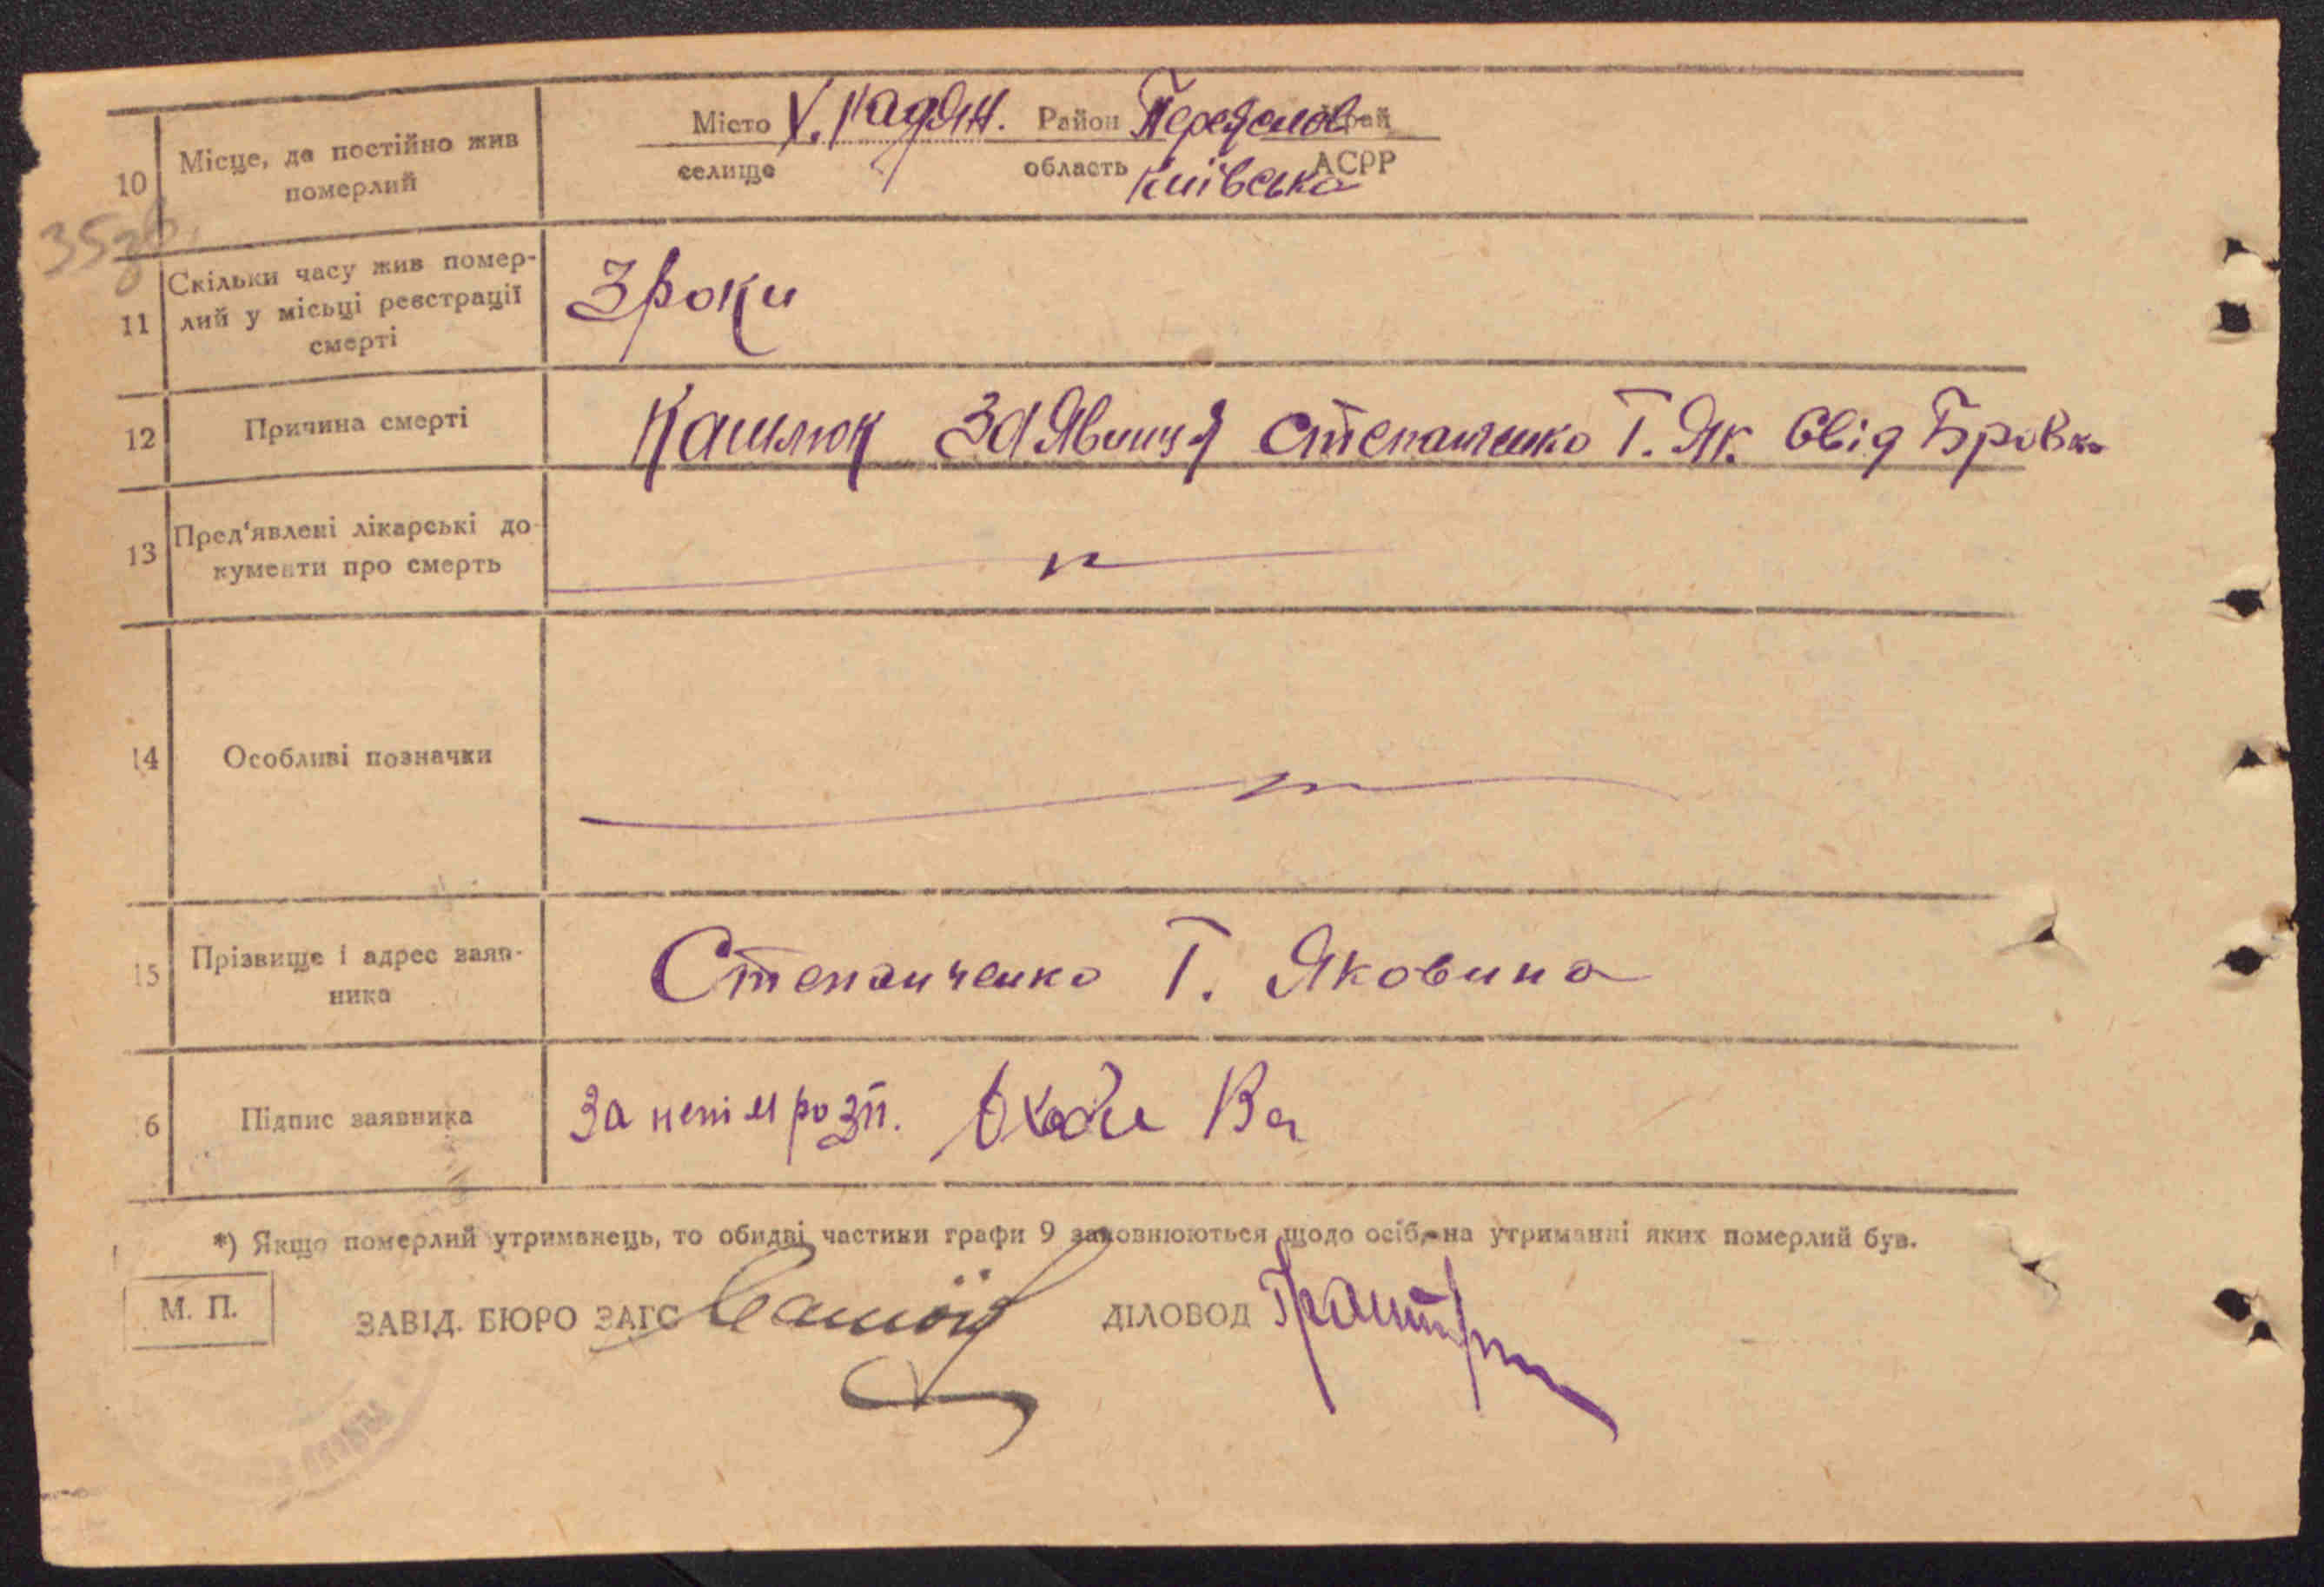 Місто Х. Район Переяслов край
селище область Київська АСРР
10 Місце, де постійно жив
померлий
35зв.
11 Скільки часу жив помер-
лий у місці реєстрації
смерті
3 роки
12 Причина смерті Кашлюк Заявиня Степанченко Г. Як. Свід Бровко
13 Пред'явлені лікарські до
кументи про смерть
14 Особливі позначки
15 Прізвище і адрес заяв-
ника
Степанченко Г. Яковина
6 Підпис заявника За непім розп.
*) Якщо померлий утриманець, то обидві частини графи 9 заповнюються щодо осіб, на утриманні яких померлий був.
М. П. ЗАВІД. БЮРО ЗАГС ДІЛОВОД